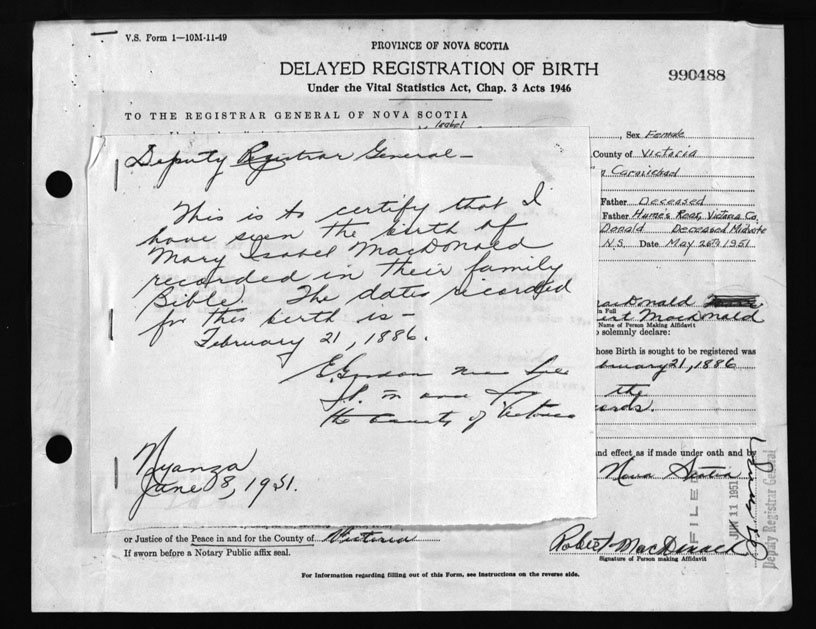 V.S. Form 1—10M-11-49
PROVINCE OF NOVA SCOTIA
DELAYED REGISTRATION OF BIRTH
990488
Under the Vital Statistics Act, Chap. 3 Acts 1946
TO THE REGISTRAR GENERAL OF NOVA SCOTIA
Isabel
, Sex Female
County of Victoria
Father Deceased
Father Hume's Rear, Victoria Co.
Donald Deceased
N.S. Date May 26th 1951.
Deputy Registrar General—
This is to certify that I
have seen the birth of
Mary Isabel MacDonald
recorded in their family
Bible. The dates recorded
for this birth is—
February 21, 1886.
E. Gordon
J.P. in and for
the County of Victoria
Nyanza
June 8, 1951.
MacDonald
in Full
MacDonald
Name of Person Making Affidavit
solemnly declare:
hose Birth is sought to be registered was
bruary 21, 1886
the
cords.
and effect as if made under oath and by
Nova Scotia
FILED
JUN 11 1951
Deputy Registrar General
or Justice of the Peace in and for the County of Victoria
If sworn before a Notary Public affix seal.
Signature of Person making Affidavit
For information regarding filling out of this Form, see instructions on the reverse side.